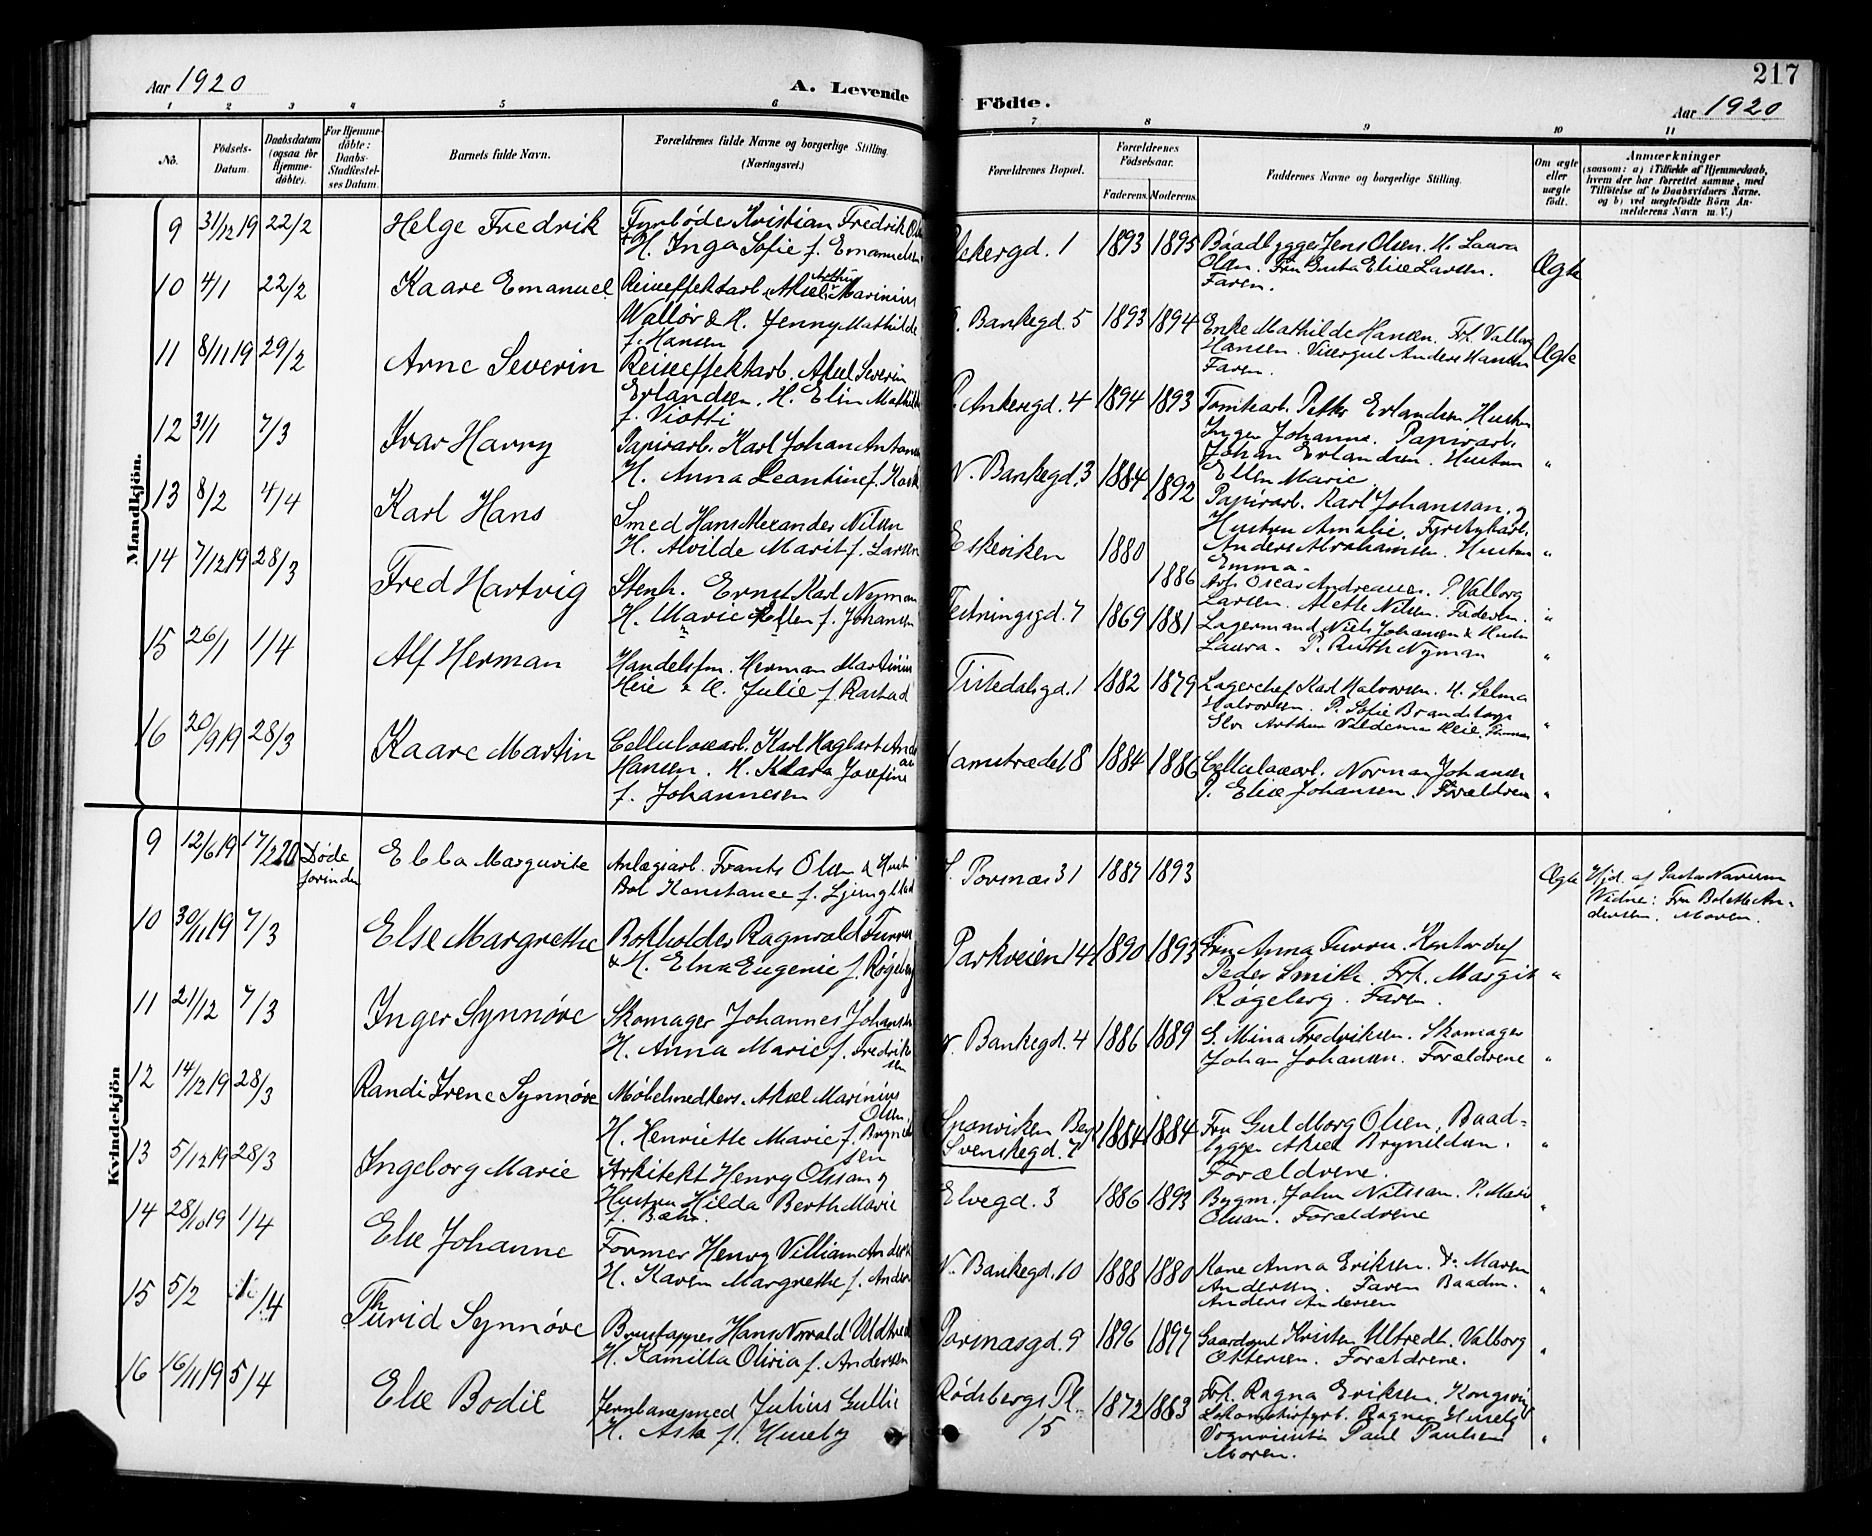 Aar 1920
A. Levende
Födte.
Aar 1920
217
1 2 3 4 5 6 7 8 9 10 11
No.
Födsels-
Datum.
Daabsdatum
(ogsaa for
Hjemme-
döbte).
For Hjemme-
döbte:
Daabs-
Stadfæstel-
ses Datum.
Barnets fulde Navn.
Forældrenes fulde Navne og borgerlige Stilling.
(Næringsvei.)
Forældrenes Bopæl.
Forældrenes
Födselsaar.
Faderens. Moderens.
Faddernes Navne og borgerlige Stilling.
Om ægte
eller
uægte
födt.
Anmærkninger
(saasom: a) i Tilfælde af Hjemmedaab,
hvem der har forrettet samme, med
Tilföielse af to Daabsvidners Navne,
og b) ved uægtefödte Börn An-
melderens Navn m. V.)
Mandkjön.
9 31/12 19 22/2 Helge Fredrik
Fyrbøder Kristian Fredrik
H. Inga Sofie f. Emanuelsen
1 1893 1895
Baadbygger Jens Olsen. H. Laura
Olsen. Fru Gusta Elise Larsen.
Faren.
Ægte
10 4/1 22/2 Kaare Emanuel
Reiseeffektarb. Aksel Marinius
Walløe & H. Jenny Mathilde
f. Hansen
Bankegd. 5 1893 1894
Enke Mathilde Hansen. Frk. Valborg
Hansen. Visergut Anders Hansen
Faren.
Ægte
11 8/11 19 29/2 Arne Severin
Reiseeffektarb. Aksel Severin
Erlandsen. H. Elin Mathilde
f. Viotti
P. Ankersgd. 4 1894 1893
Tomtearb. Petter Erlandsen Hustru
Inger Johanne. Papirarb.
Johan Erlandsen. Hustru
Ellen Marie.
"
12 31/1 7/3 Ivar Harry
Papirarb. Karl Johan Antonsen
H. Anna Leantine f.
N. Bankegd. 3 1884 1892
Papirarb. Karl Johanssan. og
Hustru Amalie. Fyrstikarb.
Anders Abrahamsen. Hustru
Emma.
"
13 8/2 4/4 Karl Hans
Smed Hans Alexander Nilsen
H. Alvilde Marit f. Larsen
Eskeviken 1880 1886
Arb. Oscar Andreasen. P. Valborg
Larsen. Alette Nilsen. Faderen.
"
14 7/12 19 28/3 Fred Hartvig
Stenh. Ernst Karl Nyman
H. Marie Ellen f. Johansen
Festningsgd. 7 1869 1881
Lagermand Niels Johansen & Hustru
Laura. P. Ruth Nyman
"
15 26/1 1/4 Alf Herman
Handelsfm. Herman Martinius
Heie & H. Julie f. Rastad
Tistedalsgd. 1 1882 1879
Lagerchef Karl Halvorsen. H. Selma
Halvorsen. P. Sofie Brandstorp
Arthur Valdemar Heie.
"
16 20/9 19 28/3 Kaare Martin
Cellulosearb. Karl Haglart
Hansen. H. Klara Josefine
f. Johannesen
Damstrædet 8 1884 1886
Cellulosearb. Norman Johansen
P. Elise Johansen. Forældrene
"
Kvindekjön
9 12/6 19 17/2 20 Døde
forinden
Ebba Margueite
Anlægsarb. Frants Olsen &
Bol Konstance f. Ljungblad
31 1887 1893
Ægte
Hjd. af Pastor
Vidne: Fru Bolette An-
dersen. Moren.
10 30/11 19 7/3 Else Margrethe
Bokholder Ragnvald Furru
& H. Elna Eugenie f. Røgeberg
Parkveien 14 1890 1893
Fru Anna Furru. Kontorchef
Peder Smith. Frk. Margit
Røgeberg. Faren.
"
11 21/12 7/3 Inger Synnøve
Skomager Johannes Johansen
H. Anna Marie f. Fredrik-
sen
N. Bankegd. 4 1886 1889
G. Mina Fredriksen. Skomager
Johan Johansen. Forældrene
"
12 14/12 19 28/3 Randi Irene Synnøve
Møbelsnedkers. Aksel Marinius
Olsen
H. Henriette Marie f. Brynild-
sen
Sponviken
Svenskegd. 7 1884 1884
Fru Guldborg Olsen, Baad-
bygger Aksel Brynildsen.
Forældrene.
"
13 5/12 19 28/3 Ingeborg Marie
Arkitekt Henry Olssan og
Hustru Hilda Berth Marie
f.
Elvegd. 3 1886 1893
Bygm. John Nilssan. P. Marie
Olssan. Forældrene
"
14 28/10 19 1/4 Else Johanne
Former Henry Villiam Anders
H. Karen Margrethe f. Anders
N. Bankegd. 10 1888 1880
Kone Anna Eriksen. Maren
Andersen. Faren Baadm.
Anders Andersen
"
15 5/2 1/4 Thurid Synnøve
Hans Norvald Uldtredt
H. Kamilla Olivia f. Andersen
Porsnæsgd. 9 1896 1897
Kristen Ultredt. Valborg
Oktersen. Forældrene.
"
16 16/11 19 5/4 Else Bodil
Jernbanesmed Julius Gullie
H. Asta f. Huseby
Rødsbergs Pl.
15 1872 1883
Frk. Ragna Eriksen. Kongsving
Lokomotivfyrb. Ragnar Huseby
Vognvisitør Paul Paulsen
Moren.
"